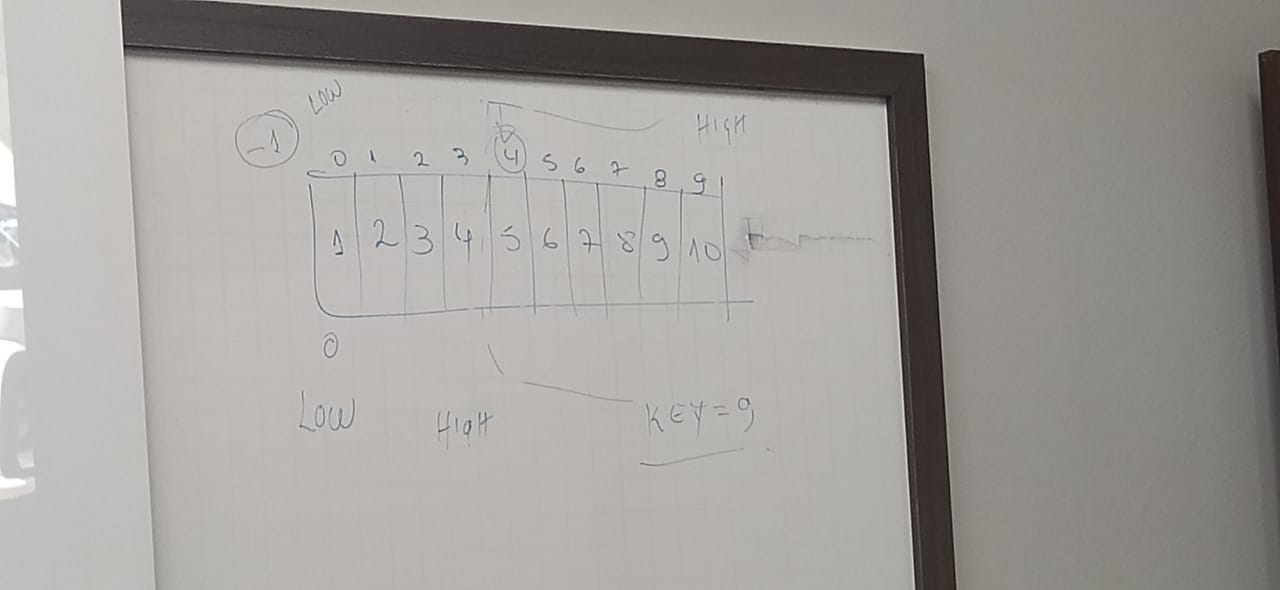 LOW
HIGH
-1
0 1 2 3 4 5 6 7 8 9
1 2 3 4 5 6 7 8 9 10
0
LOW HIGH KEY=9